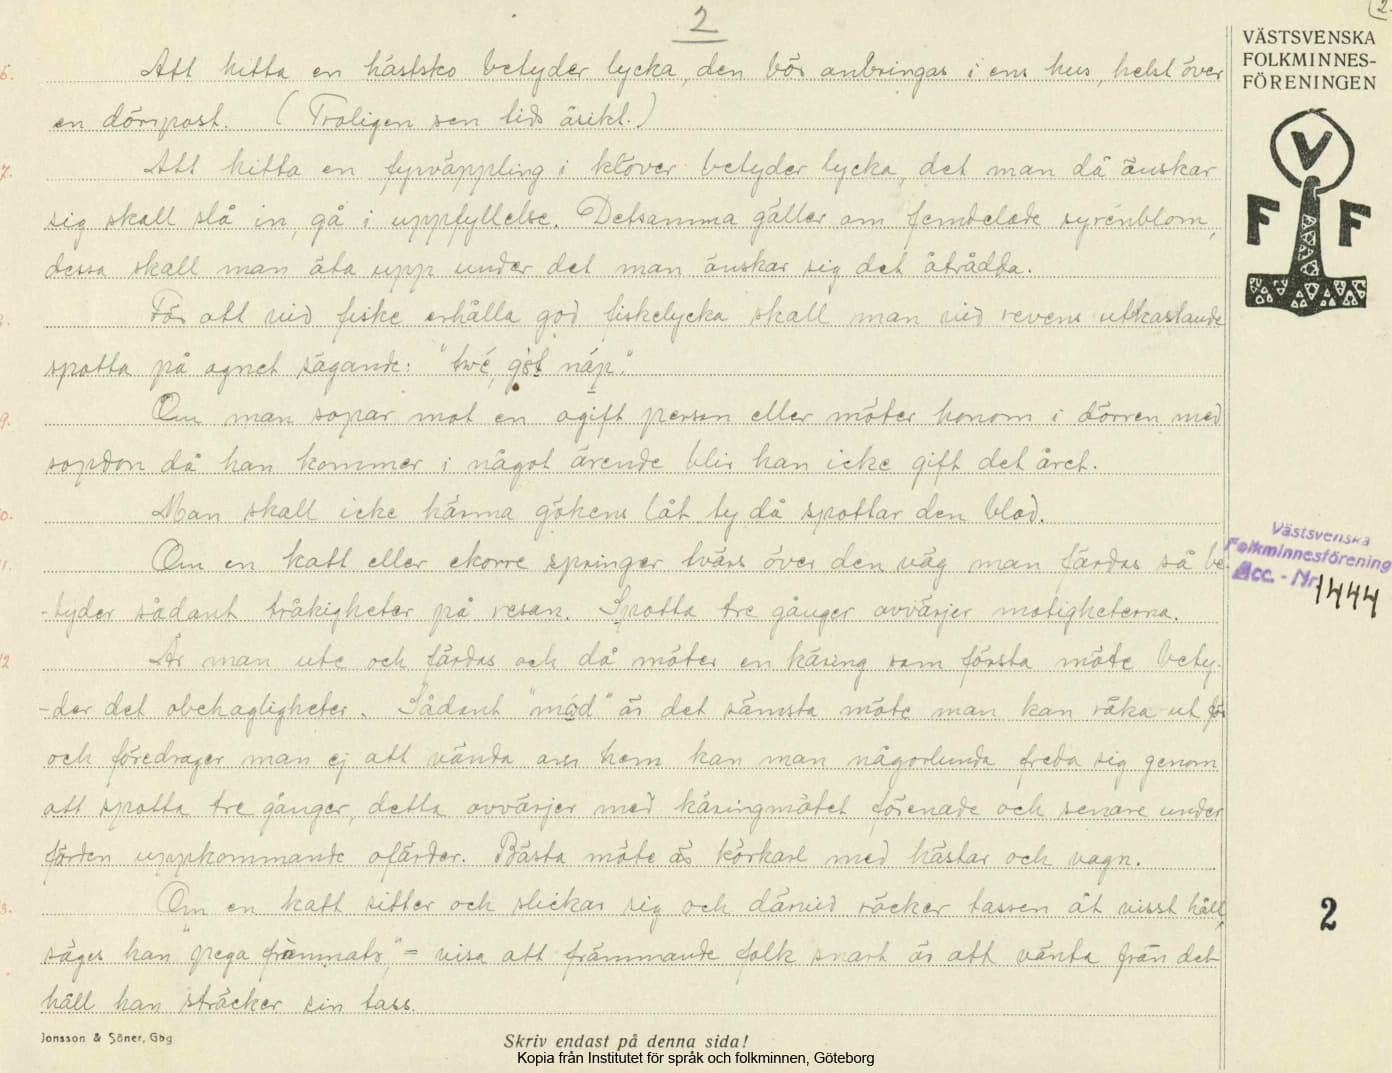 2
6. Att hitta en hästsko betyder lycka, den bör anbringas i ens hus, helst över
en dörrpost. (Troligen sen tids åsikt.)
7. Att hitta en fyrväppling i klöver betyder lycka, det man då önskar
sig skall slå in, gå i uppfyllelse. Detsamma gäller om femdelade syrénblom,
dessa skall man äta upp under det man önskar sig det åtrådda.
8. För att vid fiske erhålla god fiskelycka skall man vid revens utkastande
spotta på agnet sägande: "twé, gôt náp."
9. Om man sopar mot en ogift person eller möter honom i dörren med
sopdon då han kommer i något ärende blir han icke gift det året.
10. Man skall icke härma gökens låt ty då spottar den blod.
11. Om en katt eller ekorre springer tvärs över den väg man färdas så be-
-tyder sådant tråkigheter på resan. Spotta tre gånger avvärjer motigheterna.
12 Är man ute och färdas och då möter en käring som första möte bety-
-der det obehagligheter. Sådant "mód" är det sämsta möte man kan råka ut för
och föredrager man ej att vända om hem kan man någorlunda freda sig genom
att spotta tre gånger, detta avvärjer med käringmötet förenade och senare under
färden uppkommande ofärder. Bästa möte är körkarl med hästar och vagn.
13. Om en katt sitter och slickar sig och därvid räcker tassen åt visst håll,
säges han "pega främmats," = visa att främmande folk snart är att vänta från det
håll han sträcker sin tass.
Jonsson & Söner, Gbg
Skriv endast på denna sida!
Kopia från Institutet för språk och folkminnen, Göteborg
VÄSTSVENSKA
FOLKMINNES-
FÖRENINGEN
V
F F
Västsvenska
Folkminnesförening
Acc. - Nr 1444
2